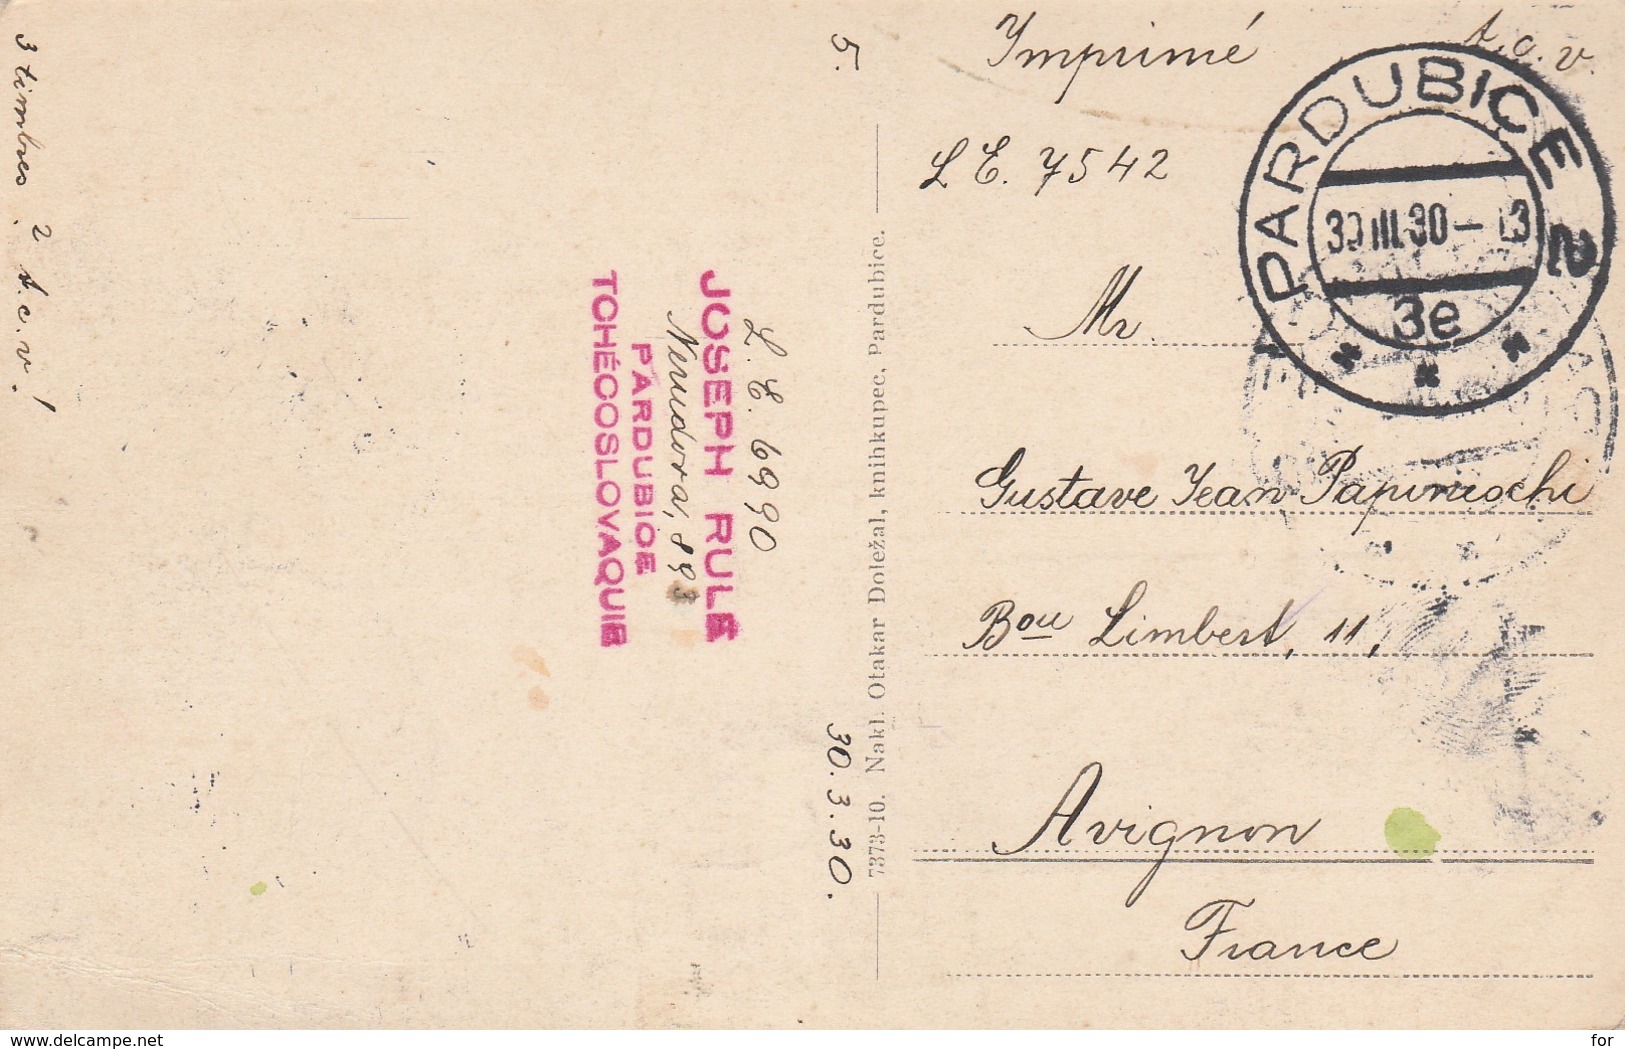 3 timbres 2 t.c.v!
5.
30.3.30.
L. E. 6990
JOSEPH RULE
Nerudova, 893
PARDUBICE
TCHÉCOSLOVAQUIE
7373-10. Nakl. Otakar Doležal, knihkupec, Pardubice.
Imprimé
t.c.v.
L E. 7542
PARDUBICE 2
30.III.30-13
3e
Mr.
Gustave Jean
Bou Limbert, 11,
Avignon
France
www.delcampe.net
for